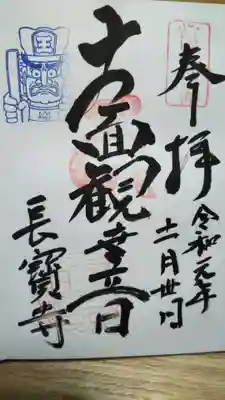 奉拝
令和元年
十一月卅日
十一面観世音
長寶寺
王